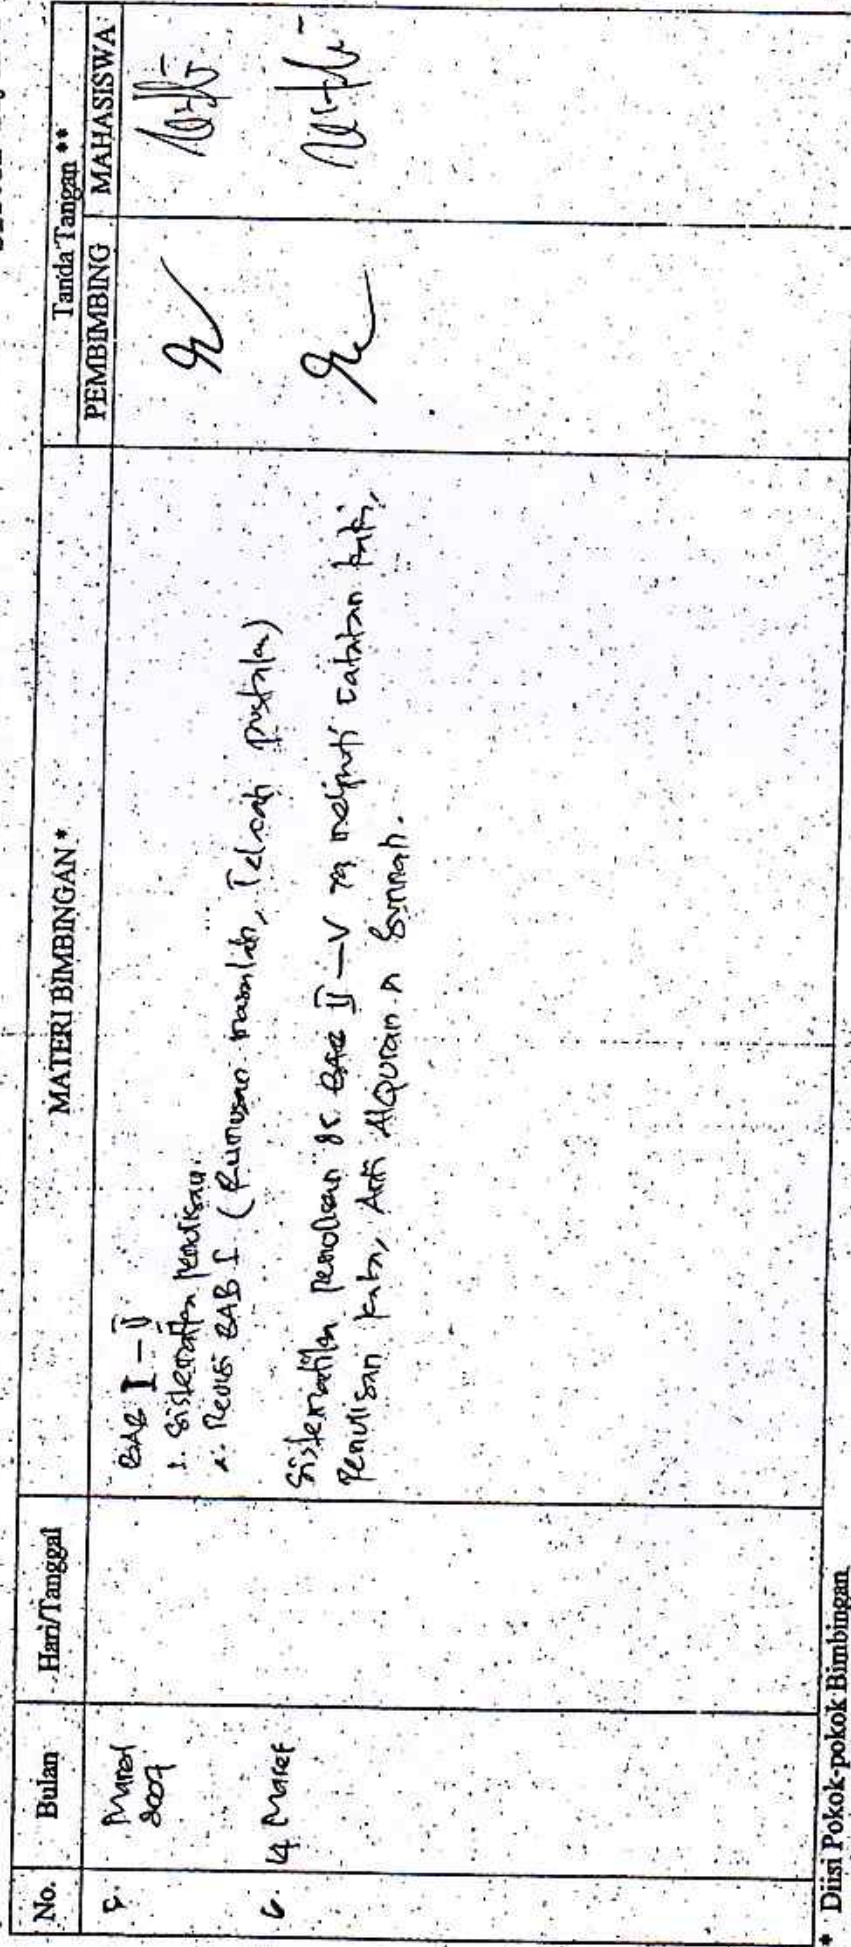 No. Bulan Hari/Tanggal MATERI BIMBINGAN * Tanda Tangan **
PEMBIMBING MAHASISWA
5. Maret BAB I – II
2009 1. Sistematika penulisan.
2. Revisi BAB I (Rumusan masalah, Telaah pustaka)
6. 14 Maret Sistematika penulisan BAB II – V yg meliputi catatan kaki,
penulisan kata, Arti AlQuran n Sunnah.
* Diisi Pokok-pokok Bimbingan